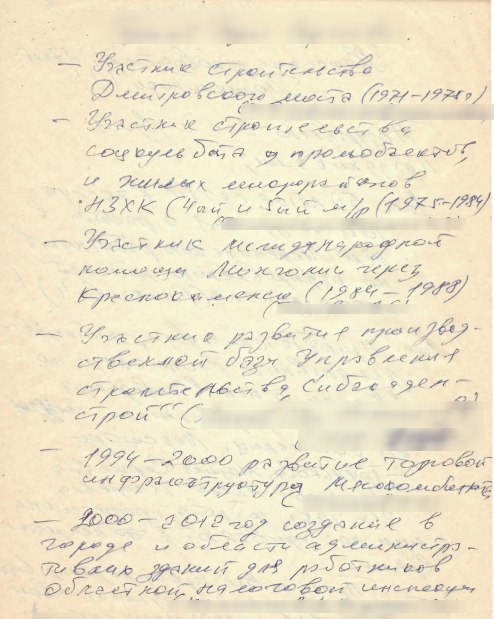 — Участник строительства
Дмитровского моста (1971-1978г)
— Участник строительства
соцкультбыта и промобъектов,
и жилых микрорайонов
НЗХК (4ый и 5ый м/р (1975-1984)
— Участник международной
помощи Монголии через
Краснокаменск (1984-1988)
— Участник развития производ-
ственной базы Управления
строительства „Сибакадем-
строй" (
— 1994-2000 развитие торговой
инфраструктуры Мясокомбината
— 2000-2012год создание в
городе и области администра-
тивных зданий для работников
областной, налоговой инспекции